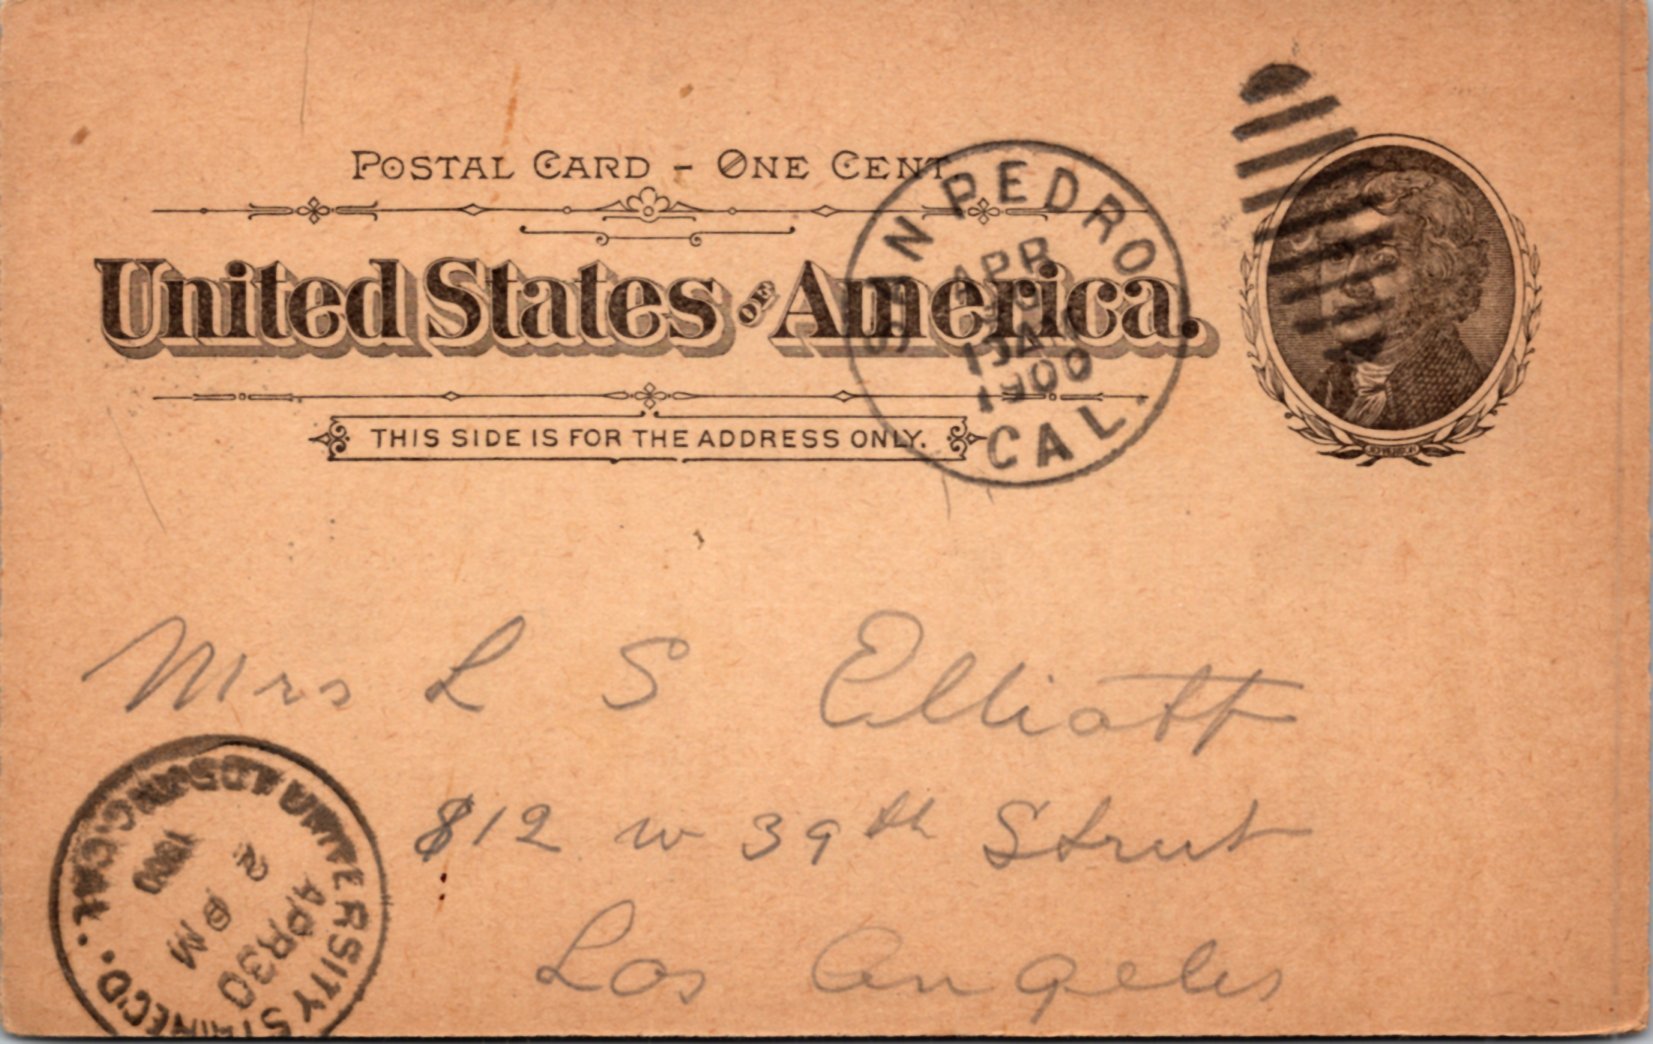 POSTAL CARD - ONE CENT
United States OF America.
THIS SIDE IS FOR THE ADDRESS ONLY.
SAN PEDRO
APR
1900
CAL.
Mrs L S Elliott
812 w 39th Street
Los Angeles
UNIVERSITY STA.
APR 30
2 PM
1900
REC'D.